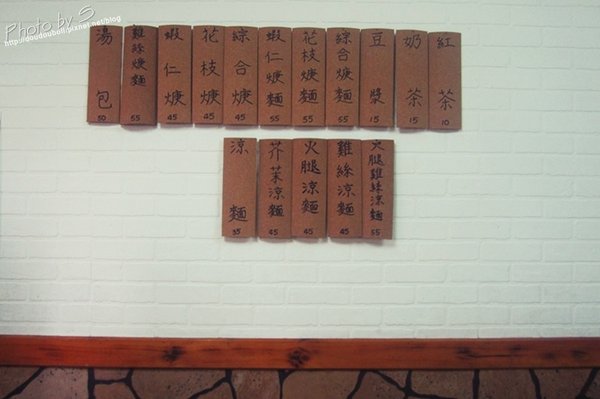 Photo by S
http://doudoubull.pixnet.net/blog
湯包
50
雞絲焿麵
55
蝦仁焿
45
花枝焿
45
綜合焿
45
蝦仁焿麵
55
花枝焿麵
55
綜合焿麵
55
豆漿
15
奶茶
15
紅茶
10
涼麵
35
芥茉涼麵
45
火腿涼麵
45
雞絲涼麵
45
火腿雞絲涼麵
55